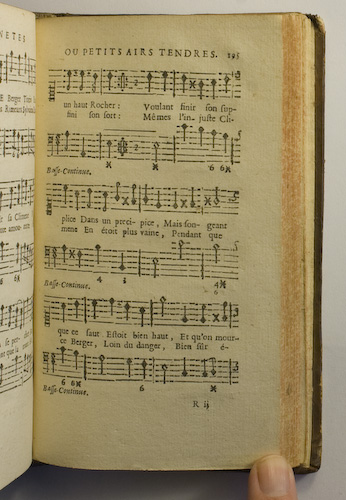 NETES
OU PETITS AIRS TENDRES. 195
un haut Rocher: Voulant finir son sup-
fini son sort: Mêmes l'in- juste Cli-
X X 6 6X
Basse-Continue.
plice Dans un precipice, Mais son- geant
mene En étoit plus vaine, Pendant que
6 4 4X
Basse-Continue. 6
que ce saut Estoit bien haut, Et qu'on mour-
ce Berger, Loin du danger, Bien sûr é-
6 6X 6 X
Basse-Continue.
R ij